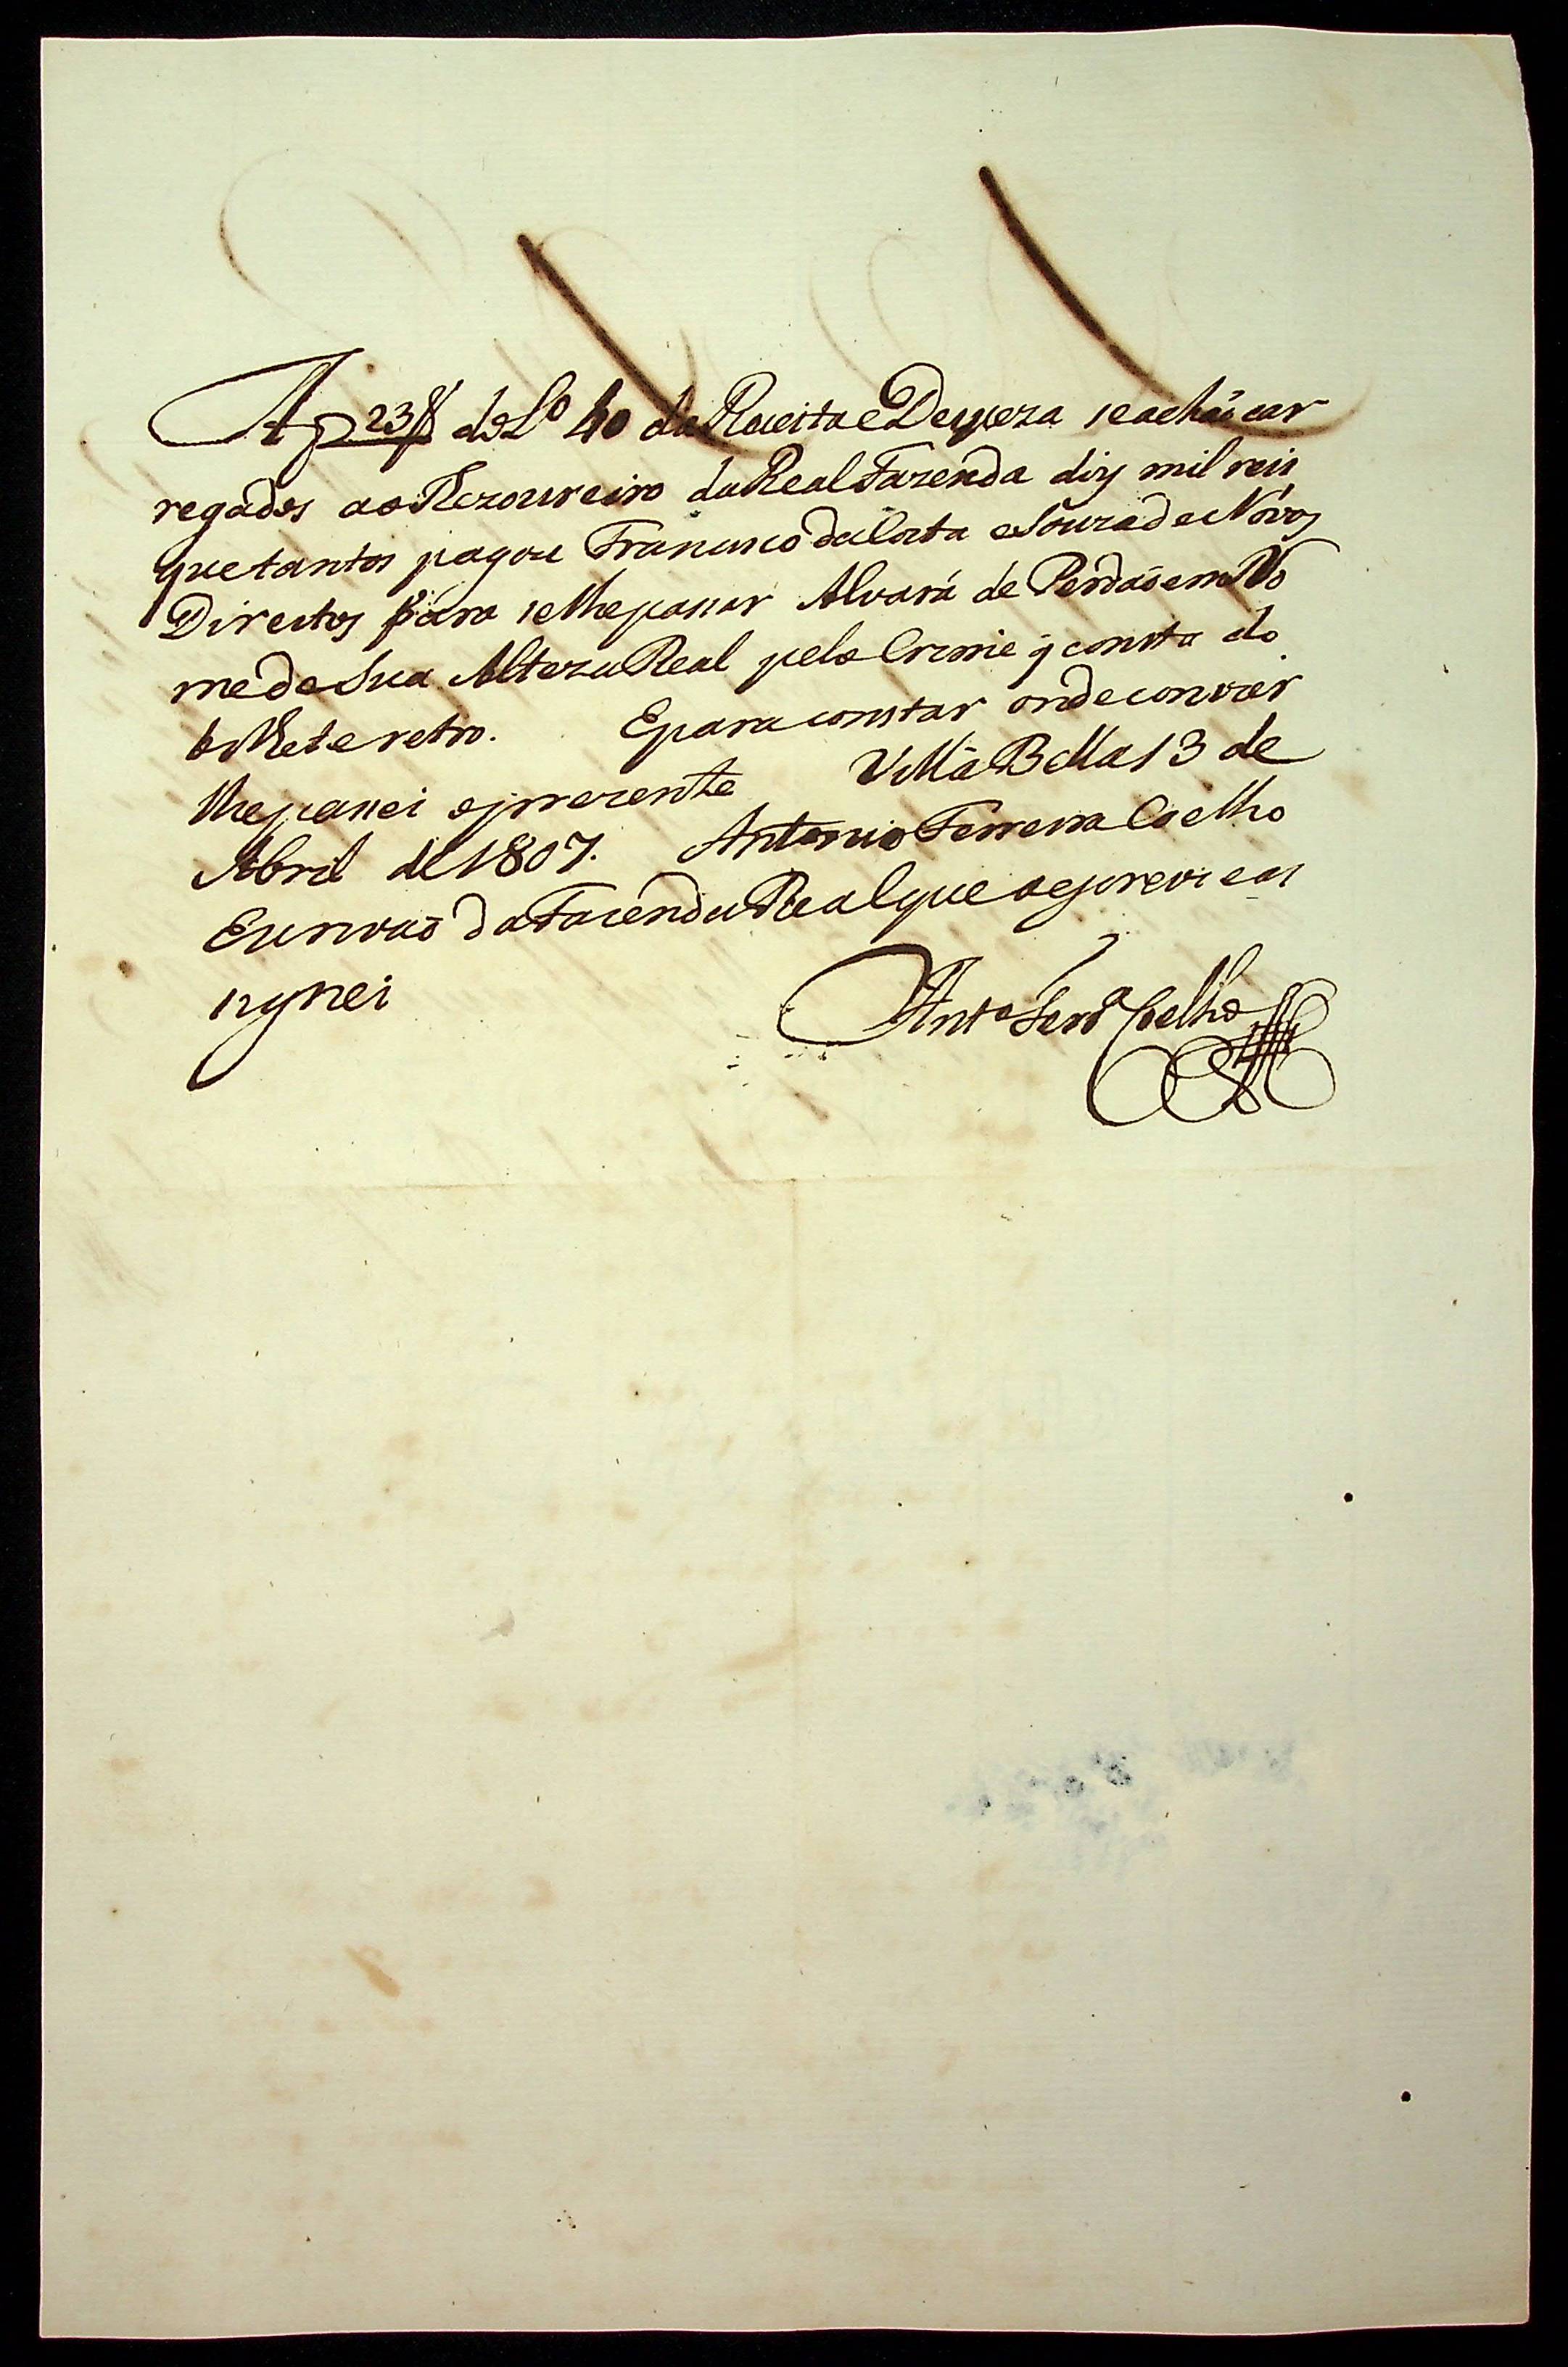 A f 23 V do L.º 40 da Receita e Despeza se achaõ car
regados ao Thezoureiro da Real Fazenda diz mil reis
que tantos pagou Francisco da Costa e Souza de Nóvos
Direitos para se lhe passar Alvará de Perdaõ em No
me de Sua Alteza Real pelo Crime q̃ consta do
bilhete retro. E para constar onde convier
lhe passei o prezente Villa Bella 13 de
Abril de 1807. Antonio Ferreira Coelho
Escrivaõ da Facenda Real que o escrevi e as
signei
Ant.º Ferr.ª Coelho